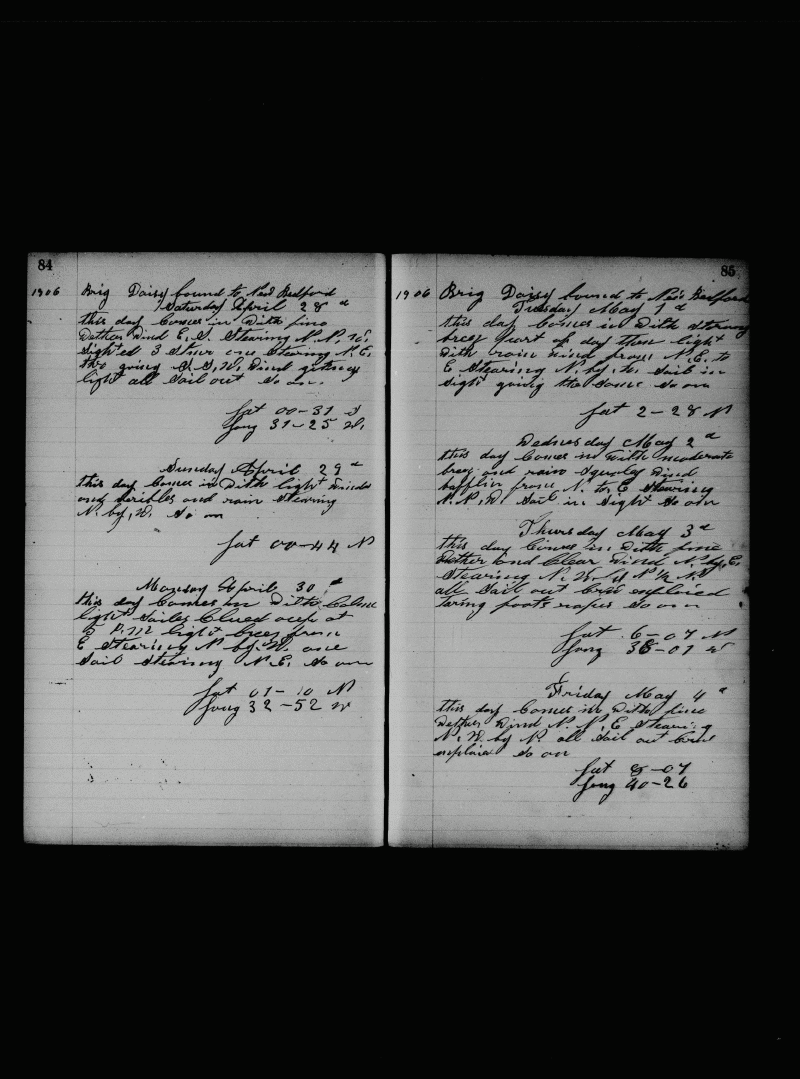 84
1906 Brig Daisy bound to New Bedford
Saturday April 28 d
this day Comes in With fine
Wether Wind E. S. Stearing N. N. W.
Sighted 3 one Stearing N. E.
two going S. S. W. Wind
light all Sail out So on
Lat 00-31 S
Long 31-25 W.
Sunday April 29 d
this day Comes in With light Winds
and and rain Stearing
N. by, W. So on
Lat 00-44 N
Monday April 30 d
this day Comes in With
light Sailes Clued at
5 P.M light from
E Stearing N by W one
Sail Stearing N. E. So on
Lat 01-10 N
Long 32-52 W
85
1906 Brig Daisy bound to New Bedford
Tuesday May 1 d
this day Comes in With
breez part of day then light
With rain Wind from N. E. to
E Stearing N. by, W. Sail in
Sight going the Same So on
Lat 2-28 N
Wednesday May 2 d
this day Comes in With moderate
breez and rain Wind
from N. to E Stearing
N. N. W. Sail in Sight So on
Thursday May 3 d
this day Comes in With fine
Wether and Clear Wind N. by, E.
Stearing N. W.
all Sail out
So on
Lat 6-07 N
Long 38-01 W
Friday May 4 d
this day Comes in With fine
Wether Wind N. N. E Stearing
N. W. by N. all Sail out
So on
Lat 8-07
Long 40-26